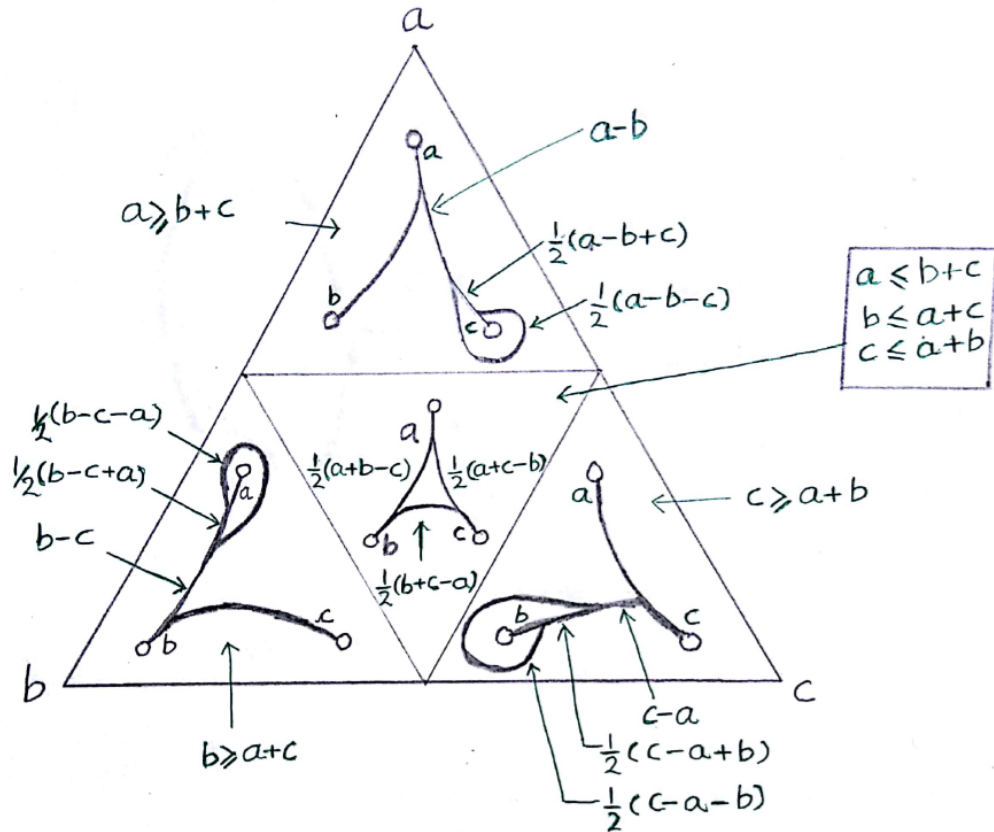 a
a
a-b
a⩾b+c
½(a-b+c)
½(a-b-c)
b
c
a≤b+c
b≤a+c
c≤a+b
½(b-c-a)
½(b-c+a)
b-c
a
a
½(a+b-c)
½(a+c-b)
b
c
½(b+c-a)
a
c⩾a+b
b
c
b
c
b
c
c-a
b⩾a+c
½(c-a+b)
½(c-a-b)